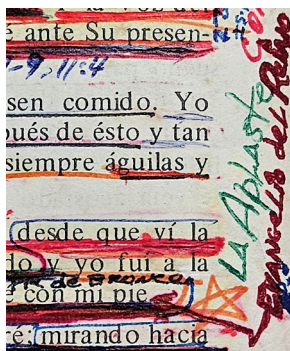 la voz del
é ante Su presen-
-9, 11:4
sen comido. Yo
pués de ésto y tan
siempre águilas y
desde que ví la
do y yo fui a la
de Bronce
e con mi pie
ré; mirando hacia
La Aplaste
Evangelio del Reino